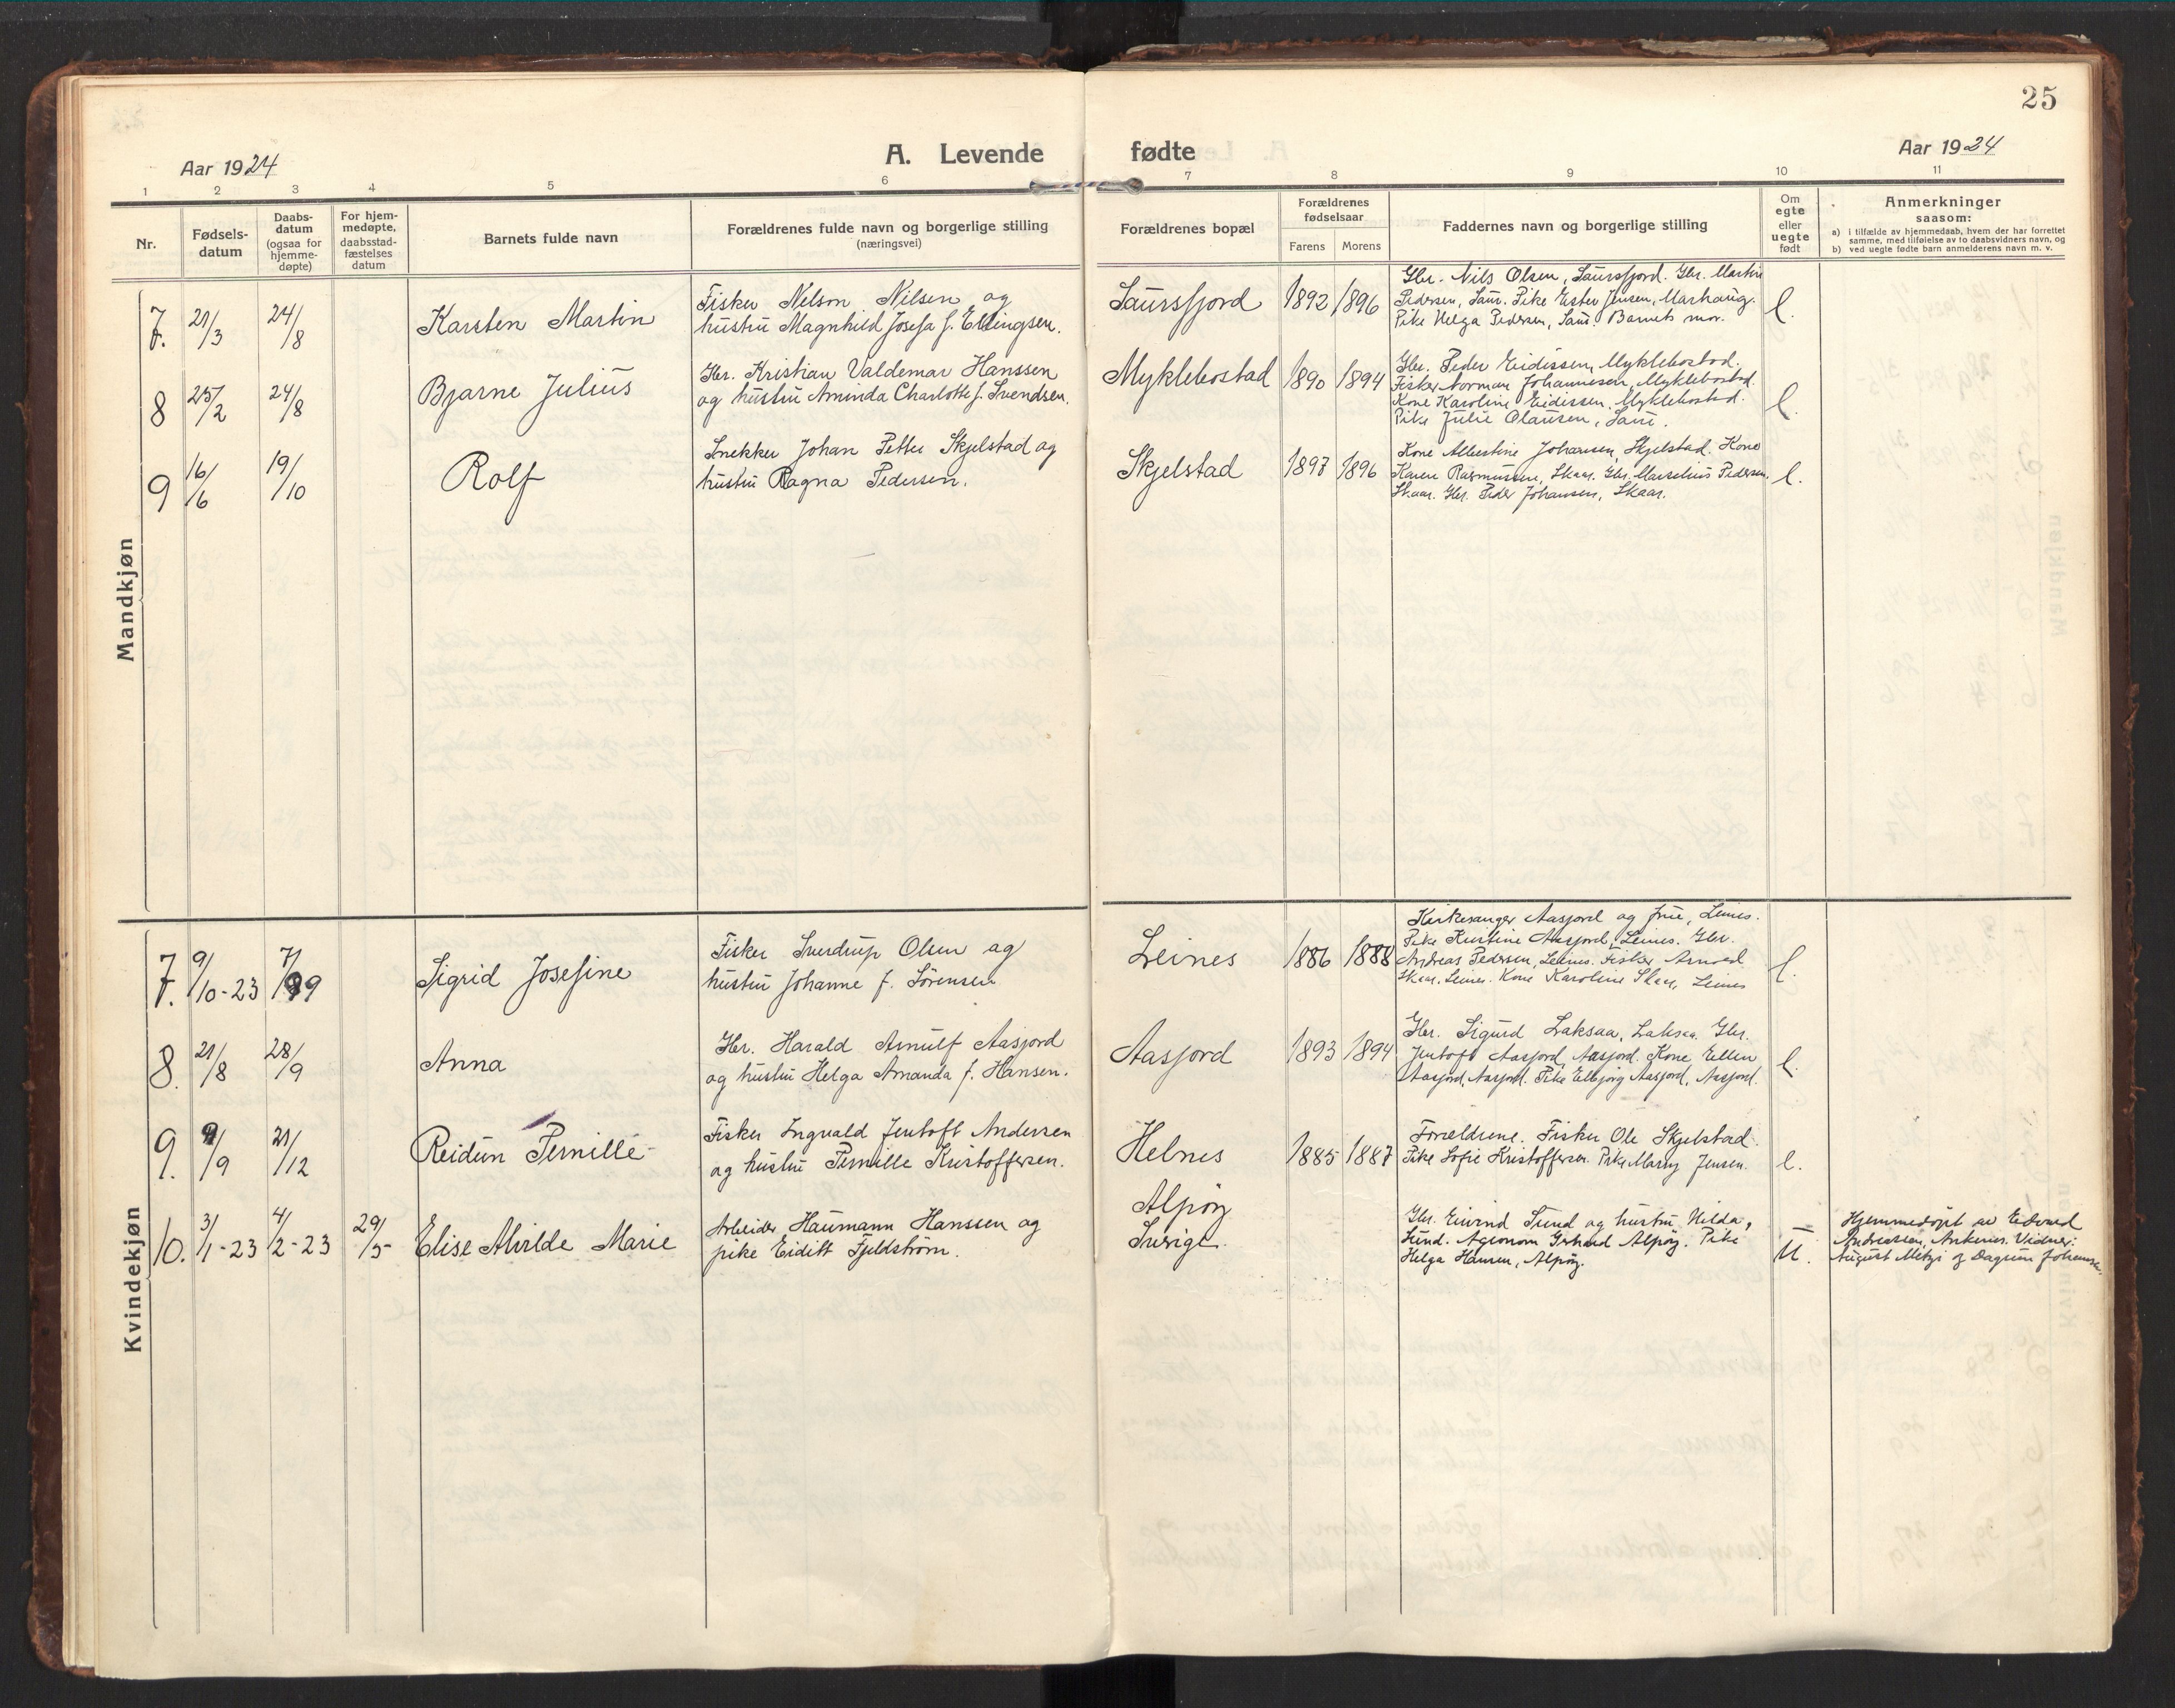 25
Aar 1924
A. Levende fødte
Aar 1924
1 2 3 4 5 6 7 8 9 10 11
Nr.
Fødsels-
datum
Daabs-
datum
(ogsaa for
hjemme-
døpte)
For hjem-
medøpte,
daabsstad-
fæstelses
datum
Barnets fulde navn
Forældrenes fulde navn og borgerlige stilling
(næringsvei)
Forældrenes bopæl
Forældrenes
fødselsaar
Farens Morens
Faddernes navn og borgerlige stilling
Om
egte
eller
uegte
født
Anmerkninger
saasom:
a) i tilfælde av hjemmedaab, hvem der har forrettet
samme, med tilføielse av to daabsvidners navn, og
b) ved uegte fødte barn anmelderens navn m. v.
Mandkjøn
7. 21/3 24/8
Karsten Martin
Fisker Nelson Nilsen og
hustru Magnhild Josefa f. Ellingsen.
Saursfjord
1892 1896
Gbr. Nils Olsen, Saursfjord. Gbr. Martin
Pedersen, Saur. Pike Ester Jensen, Marhaug.
Pike Helga Pedersen, Saur. Barnets mor.
e.
8 25/2 24/8
Bjarne Julius
Gbr. Kristian Valdemar Hanssen
og hustru Aminda Charlotte f. Svendsen.
Myklebostad
1890 1894
Gbr. Peder Eidissen, Myklebostad.
Fisker Norman Johannesen, Myklebostad.
Kone Karoline Eidissen, Myklebostad.
Pike Julie Olaussen, Saur.
e.
9 16/6 19/10
Rolf
Snekker Johan Petter Skjelstad og
hustru Ragna Pedersen.
Skjelstad
1897 1896
Kone Albertine Johansen, Skjelstad. Kone
Karen Rasmussen, Skaar. Gbr. Marselius Pedersen,
Skaar. Gbr. Peder Johansen, Skaar.
e.
Kvindekjøn
7. 9/10-23 7/9
Sigrid Josefine
Fisker Sverdrup Olsen og
hustru Johanne f. Sørensen
Leines
1886 1888
Kirkesanger Aasjord og frue, Leines.
Pike Kristine Aasjord, Leines. Gbr.
Andreas Pedersen, Leines. Fisker Arnold
Skaar, Leines. Kone Karoline Skaar, Leines
e.
8. 21/8 28/9
Anna
Gbr. Harald Arnulf Aasjord
og hustru Helga Amanda f. Hansen.
Aasjord
1893 1894
Gbr. Sigurd Laksaa, Laksaa. Gbr.
Jentoft Aasjord, Aasjord. Kone Ellen
Aasjord, Aasjord. Pike Elbjørg Aasjord, Aasjord.
e.
9. 9/9 21/12
Reidun Pernille
Fisker Ingvald Jentoft Andersen
og hustru Pernille Kristoffersen.
Helnes
1885 1887
Forældrene. Fisker Ole Skjelstad.
Pike Sofie Kristoffersen. Pike Marry Jensen.
e.
10. 3/1-23 4/2-23 29/5
Elise Alvilde Marie
Arbeider Haumann Hanssen og
pike Eiditt Fjeldstrøm.
Alpøy
Sverige.
Gbr. Eivind Sund og hustru Hilda,
Sund. Agronom Gerhard Alpøy. Pike
Helga Hansen, Alpøy.
U.
Hjemmedøpt av Edvard
Andreassen, Vidner:
August og Dagrun Johansen.